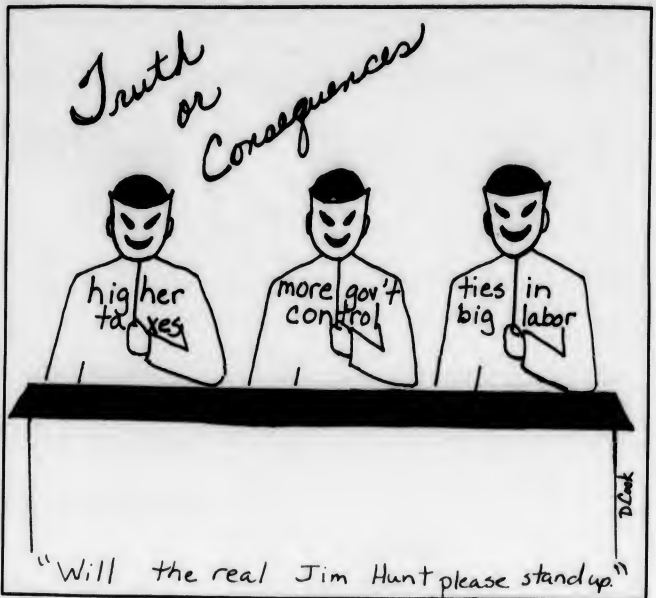 Truth
or
Consequences
higher
taxes
more gov't
control
ties in
big labor
D Cook
"Will the real Jim Hunt please stand up."